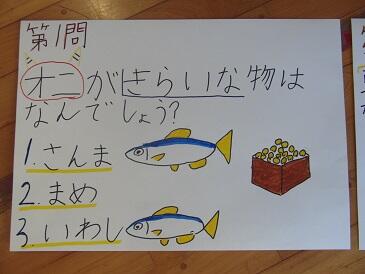 第1問
オニがきらいな物は
なんでしょう?
1.さんま
2.まめ
3.いわし